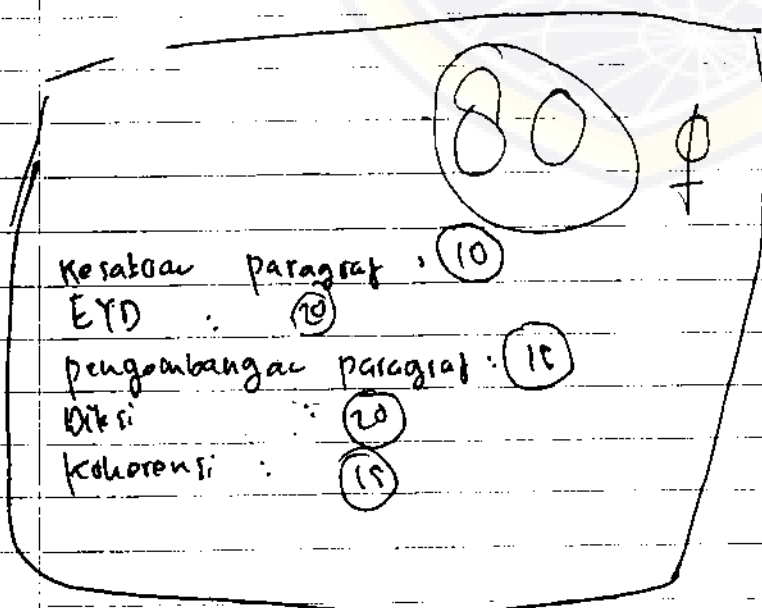 80
Kesatuan paragraf : 10
EYD : 20
pengembangan paragraf : 15
Diksi : 20
Koherensi : 15